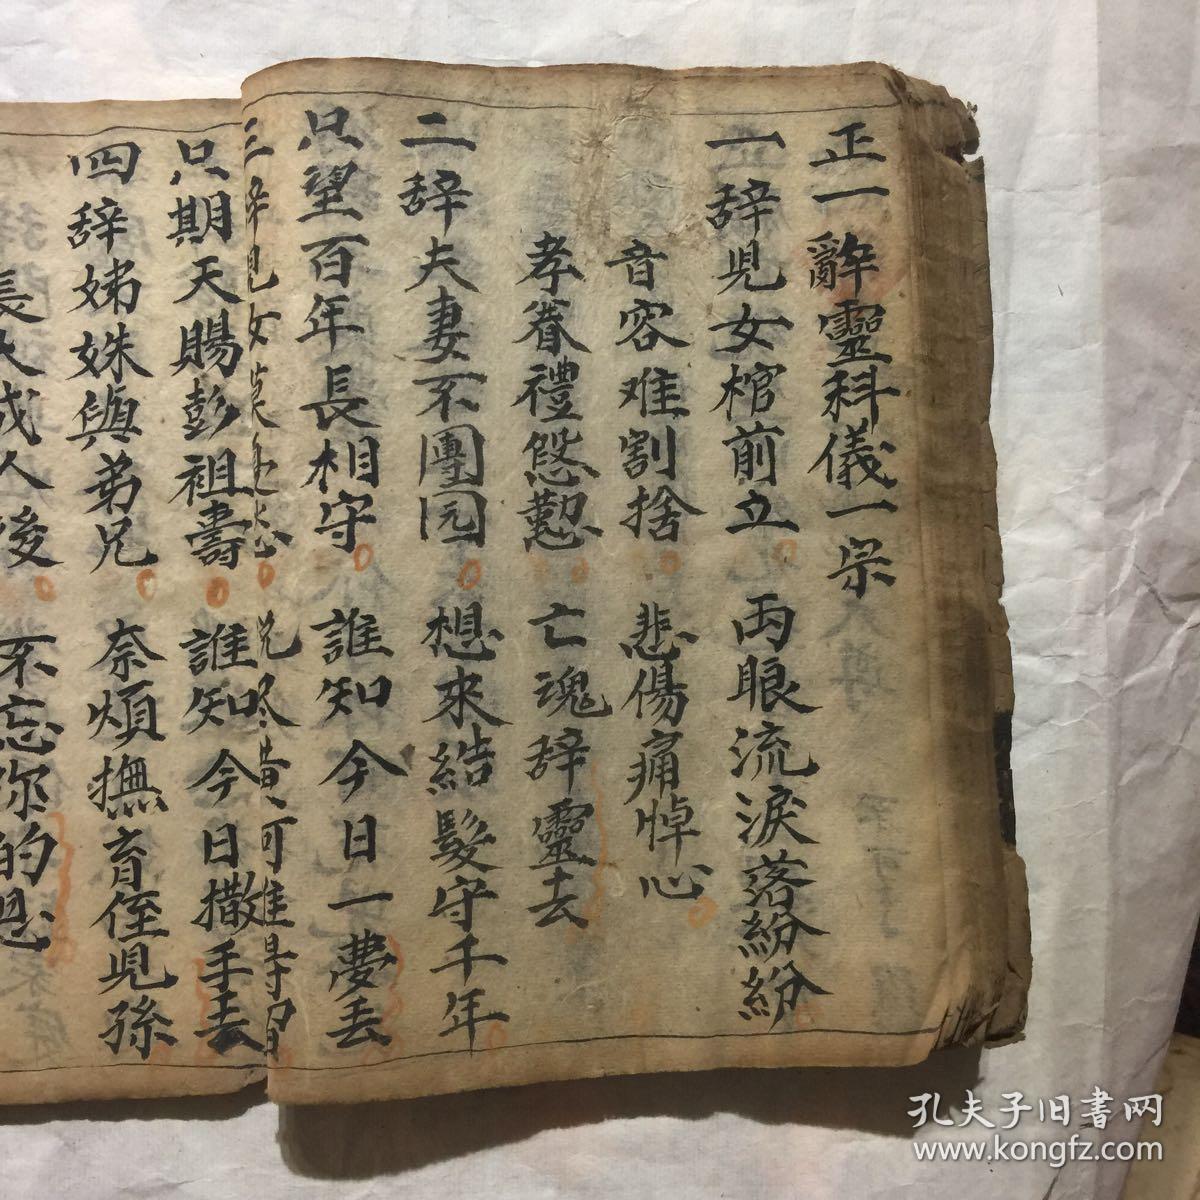 正一辭靈科儀一宗
一辞児女棺前立 両眼流淚落紛紛
音容难割捨 悲傷痛悼心
孝眷禮慇懃 亡魂辞靈去
二辞夫妻不團园 想來結髮守千年
只望百年長相守 誰知今日一夢丟
三辞児女
只期天賜彭祖壽 誰知今日撒手去
四辞姊妹與弟兄 奈煩撫育侄児孫
長大成人後 不忘你的恩
孔夫子旧書网
www.kongfz.com